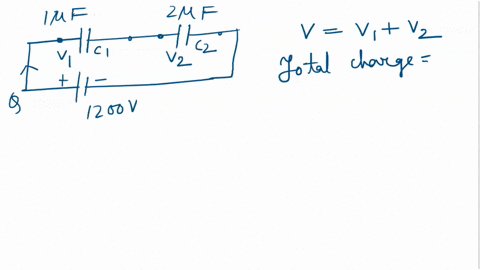 1μF 2μF
V1 C1 V2 C2
+ -
Q 1200V
V = V1 + V2
Total charge =